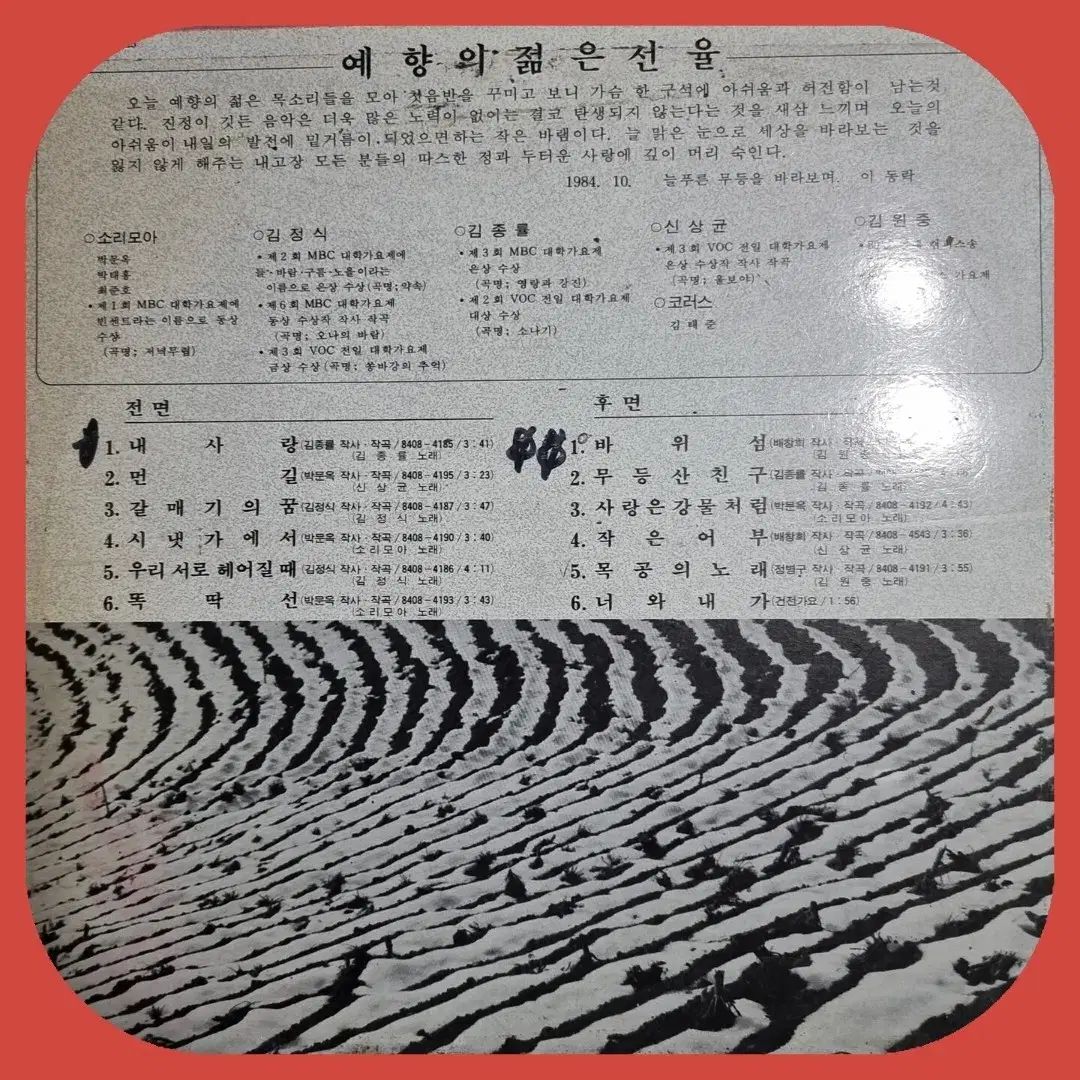 예향의젊은선율
오늘 예향의 젊은 목소리들을 모아 첫음반을 꾸미고 보니 가슴 한 구석에 아쉬움과 허전함이 남는것
같다. 진정이 깃든 음악은 더욱 많은 노력이 없이는 결코 탄생되지 않는다는 것을 새삼 느끼며 오늘의
아쉬움이 내일의 발전에 밑거름이 되었으면하는 작은 바램이다. 늘 맑은 눈으로 세상을 바라보는 것을
잃지 않게 해주는 내고장 모든 분들의 따스한 정과 두터운 사랑에 깊이 머리 숙인다.
1984. 10. 늘푸른 무등을 바라보며. 이 동락
○소리모아
박문옥
박태홍
최준호
• 제1회 MBC 대학가요제에
빈센트라는 이름으로 동상
수상
(곡명; 저녁무렵)
○김 정 식
• 제2회 MBC 대학가요제에
들·바람·구름·노을이라는
이름으로 은상 수상(곡명;약속)
• 제6회 MBC 대학가요제
동상 수상작 작사 작곡
(곡명; 오나의 바람)
• 제3회 VOC 전일 대학가요제
금상 수상(곡명; 쏭바강의 추억)
○김 종 률
• 제3회 MBC 대학가요제
은상 수상
(곡명; 영랑과 강진)
• 제2회 VOC 전일 대학가요제
대상 수상
(곡명; 소나기)
○신 상 균
• 제3회 VOC 전일 대학가요제
은상 수상작 작사 작곡
(곡명; 울보야)
○코러스
김 태 준
○김 원 중
가요제
전 면
1. 내 사 랑(김종률 작사·작곡/8408-4185/3:41)
(김 종 률 노래)
2. 먼 길(박문옥 작사·작곡/8408-4195/3:23)
(신 상 균 노래)
3. 갈매기의 꿈(김정식 작사·작곡/8408-4187/3:47)
(김 정 식 노래)
4. 시냇가에서(박문옥 작사·작곡/8408-4190/3:40)
(소리모아 노래)
5. 우리 서로 헤어질때(김정식 작사·작곡/8408-4186/4:11)
(김 정 식 노래)
6. 똑 딱 선(박문옥 작사·작곡/8408-4193/3:43)
(소리모아 노래)
후 면
1. 바 위 섬(배창희 작사·작곡
(김 원 중
2. 무등산친구(김종률 작사·작곡/8408
(김 종 률 노래)
3. 사랑은강물처럼(박문옥 작사·작곡/8408-4192/4:43)
(소리모아 노래)
4. 작 은 어 부(배창희 작사·작곡/8408-4543/3:36)
(신 상 균 노래)
5. 목공의노래(정병구 작사·작곡/8408-4191/3:55)
(김 원 중 노래)
6. 너 와 내 가(건전가요/1:56)